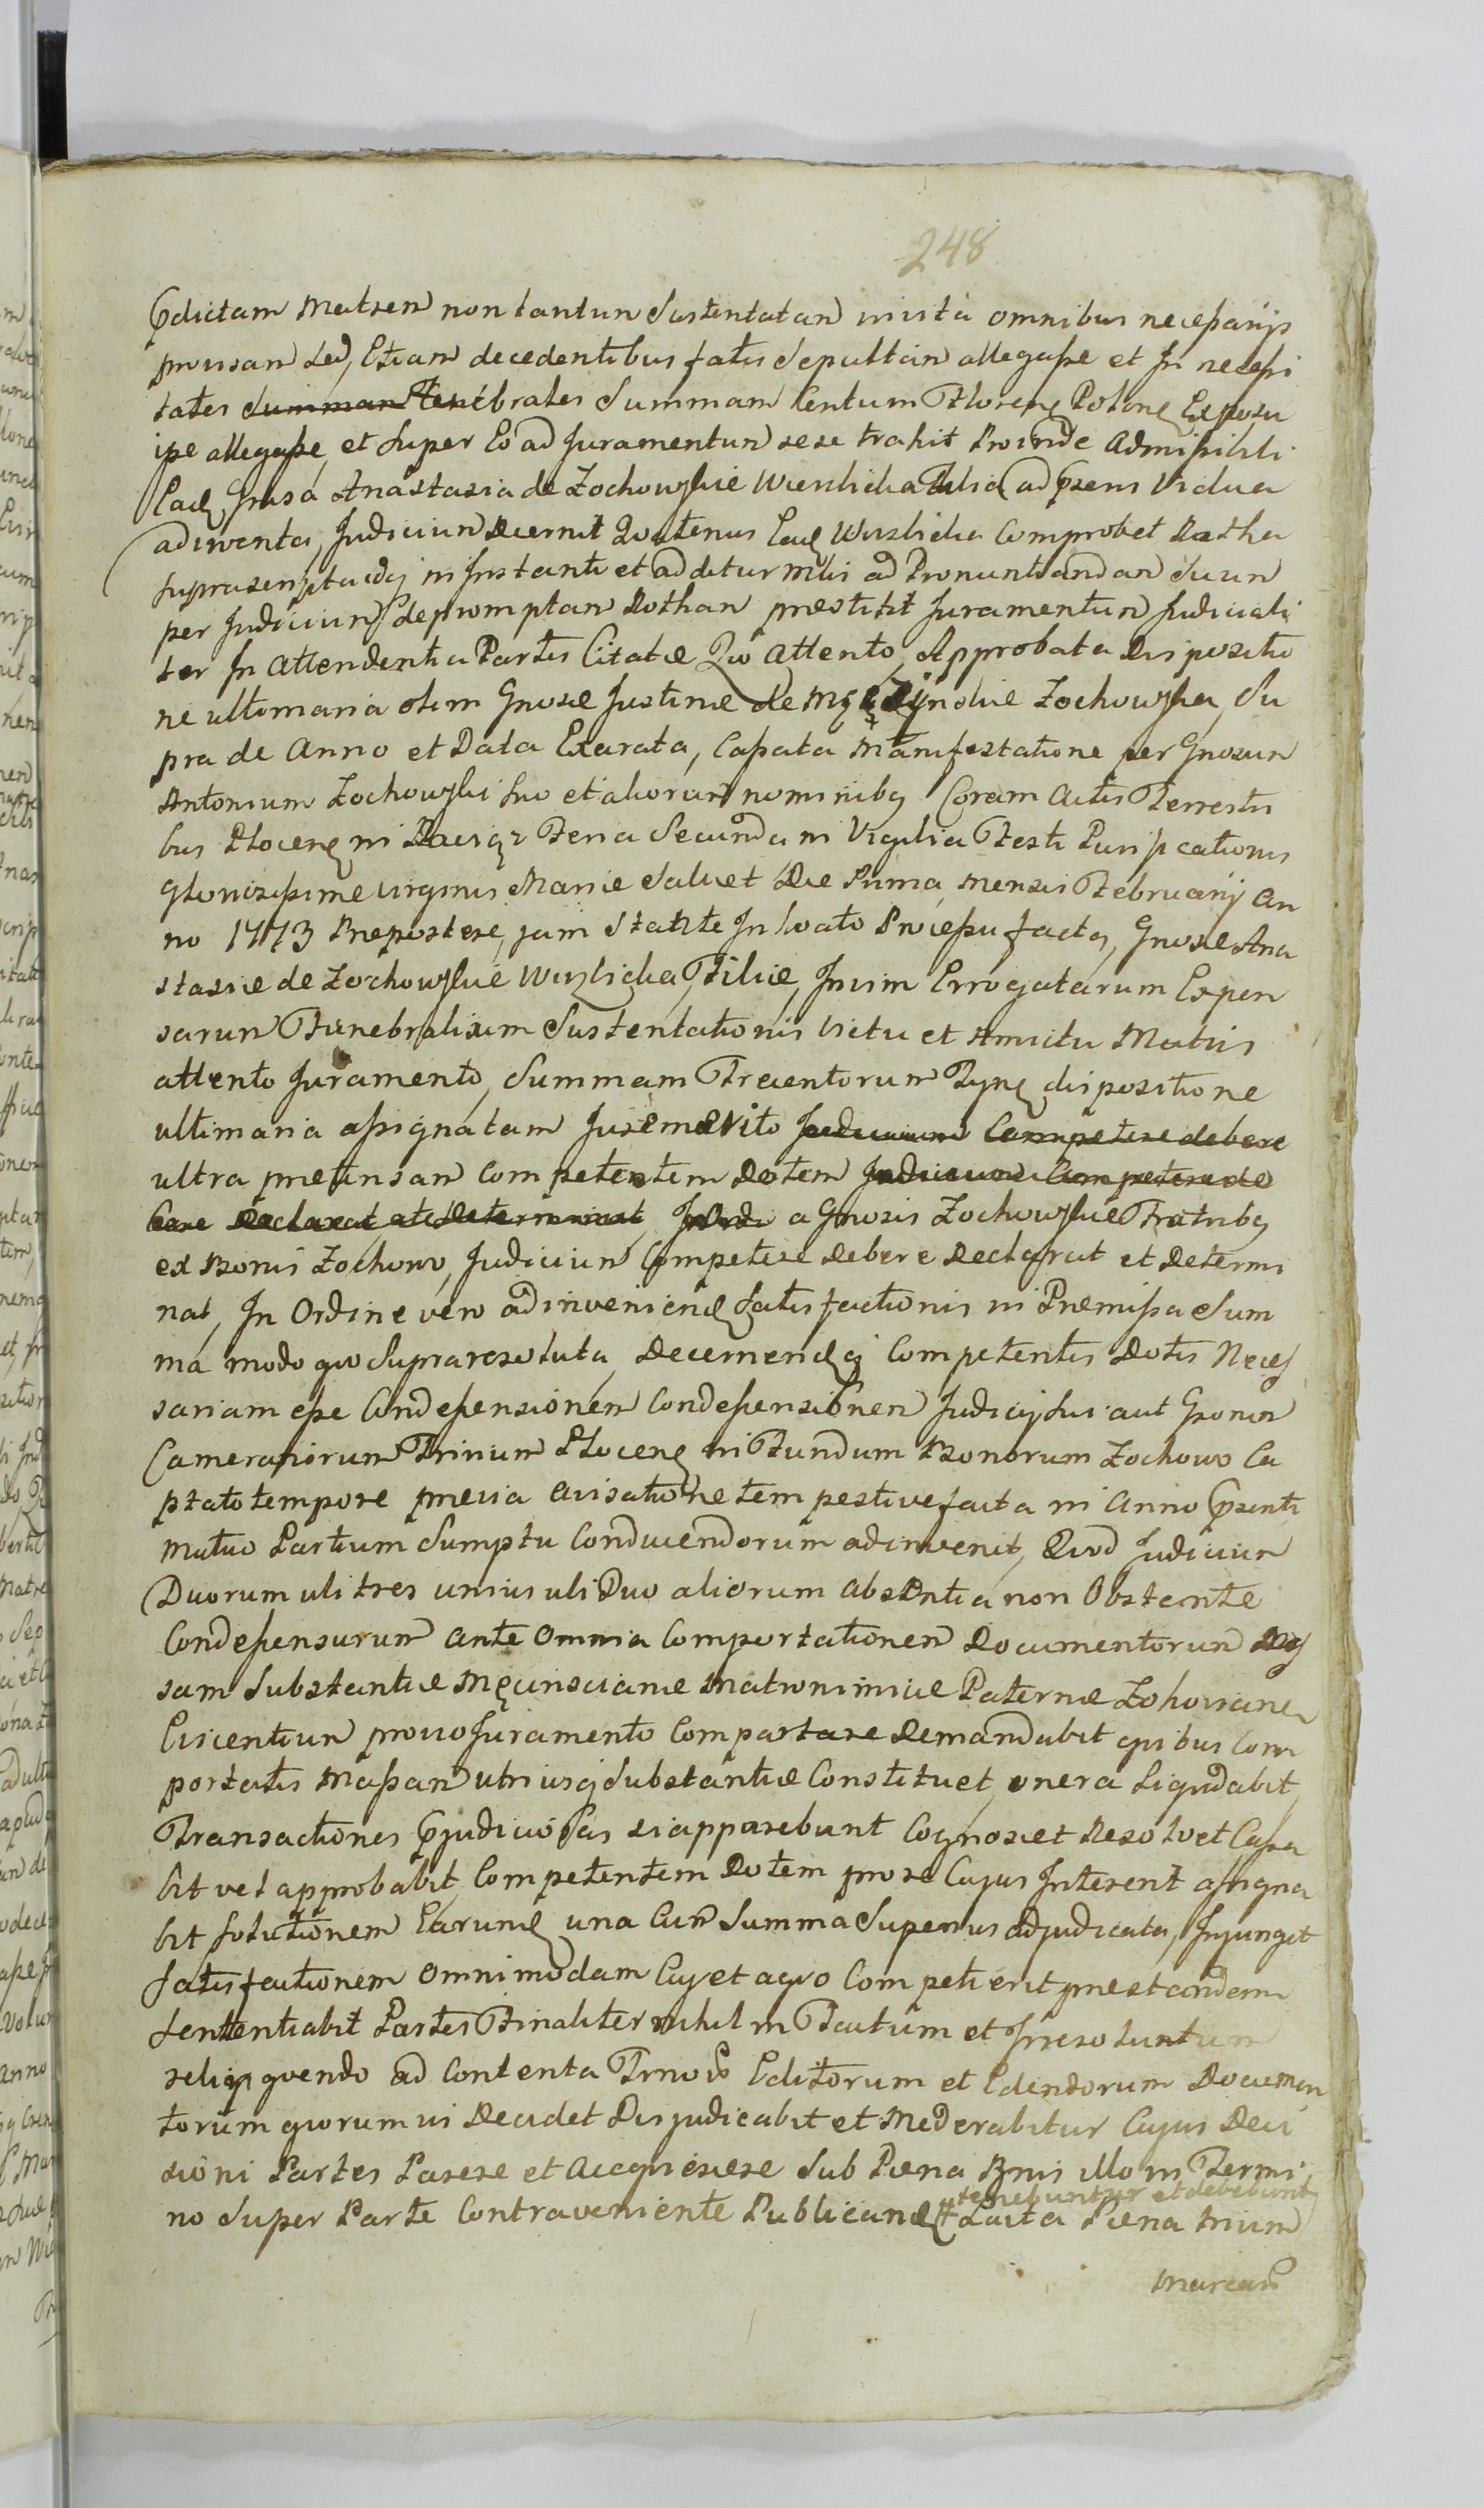 248
Pdictam Matrem non tantum Sustentatam imo ta omnibus necessarijs
provisam sed, Etiam decedentibus fatis Sepultam allegasse et In necessi
tates Summam Funebrales Summam Centum Floreno Polono Exposu
isse allegasse, et super Eo ad Juramentum sese trahit Proinde Admissibili
Ead Gnosa Anastasia de Żochowskie Wierzbicka Filia ad Psens Vidua
adinventa, Judicium Decernit Quatenus Ead Wirzbicka Comprobet Rotha
suprascripta idq in Instanti et additur Mtis ad Pronuntiandam Suum
per Judicium depromptam Rotham prestitit Juramentum Judiciali
ter In Attendentia Partis Citatæ Quo Attento, Approbata Dispositio
ne ultimaria olim Gnosæ Justinæ de Męczynskie Żochowska, Su
pra de Anno et Data Exarata, Cassata Manifestatione per Gnosum
Antonium Żochowski suo et aliorum nominibq Coram Actis Terrestri
bus Plocens in Raciąż Feria Secunda in Vigilia Festi Purificationis
Gloriosissimæ Virginis Mariæ Salvet Die Prima Mensis Februarij An
no 1773 Prepostere, jam Stante Inhoato Processu facta, Gnosæ Ana
stasiæ de Żochowskie Wirzbicka, Filiæ, In vim Errogatarum Expen
sarum Funebralium Sustentationis Victu et Amictu Matris
attento Juramento, Summam Trecentorum Tyn dispositione
ultimaria assignatam Jure merito Judicium Competere debere
ultra pretensam Competentem Dotem Judicium Competere de
bere Declarat et Determinat, a Gnosis Żochowskie Fratribq
ex Bonis Żochowo, Judicium Competere Debere Declarat et Determi
nat, In Ordine vero adinveniend Satisfactionis in Premissa Sum
ma modo quo Supra resoluta, Decernendq Competentis Dotis Neces
sariam esse Condescensionem Condescensionem Judicij sui aut Gnorum
Camerariorum Trinum Plocens in Fundum Bonorum Żochowo Ca
ptato tempore previa Avisatione tempestive facta in Anno Psenti
mutuo Partium Sumptu Conducendorum adinvenit, Quod Judicium
Duorum uli tres unius uli Duo aliorum Absentia non Obstante
Condescensurum ante Omnia Comportationem Documentorum
sam Substantiæ Męcinscianæ Matronimicæ Paternæ Zohoviane
Eiicentium previo Juramento Comportare Demandabit quibus Com
portatis Massam utriusq Substantiæ Constituet, onera Liquidabit,
Transactiones Pjudiciosas si apparebunt Cognoscet Resolvet Cassa
bit vel approbabit, Competentem Dotem pro re Cujus Intererit assigna
bit Solutionem Earund una Cum Summa Superius adjudicata, Injunget
Satisfactionem Omnimodam Cuj et a quo Competierit prestandam
Sententiabit Partes Finaliter nihil in Factum et Irresolutum
reliquendo ad Contenta Trnovo Editorum et Edendorum Documen
torum quorumvis Decidet Disjudicabit et Moderabitur Cujus Deci
sioni Partes Parere et Acquiescere sub Pæna Bnis illo in Termi
no Super Parte Contraveniente Publicand # tenebuntur et debebunt Lucta Pæna trium
Marcaru